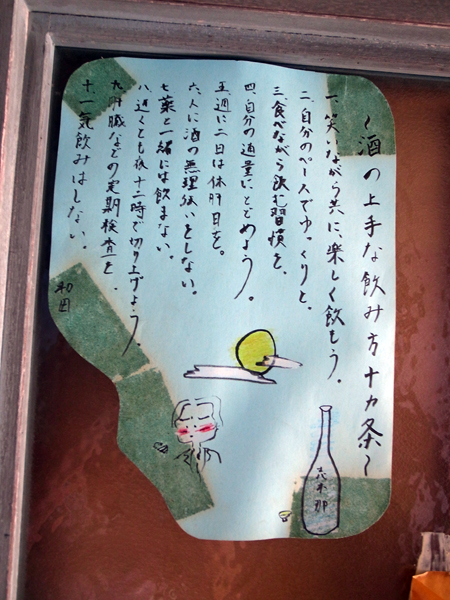 ～酒の上手な飲み方十カ条～
一、笑いながら共に、楽しく飲もう。
二、自分のペースでゆっくりと。
三、食べながら飲む習慣を。
四、自分の適量にとどめよう。
五、週に二日は休肝日を。
六、人に酒の無理強いをしない。
七、薬と一緒には飲まない。
八、遅くとも夜十二時で切り上げよう。
九、肝臓などの定期検査を、
十、一気飲みはしない。